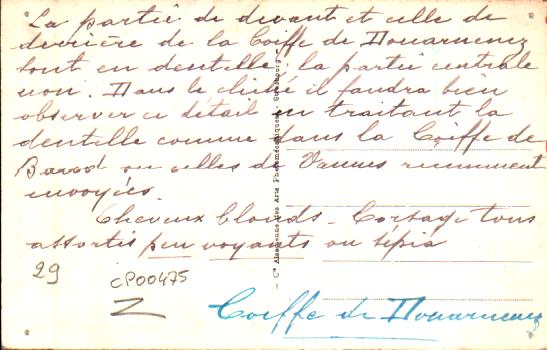 La partie de devant et celle de
derrière de la Coiffe de Douarnenez
sont en dentelle, la partie centrale
non. Dans le cliché il faudra bien
observer ce détail en traitant la
dentelle comme dans la Coiffe de
ou celles de Vannes récemment
envoyées.
Cheveux blonds - Corsage tons
assortis peu voyants ou sépia
29
CP00475
Coiffe de Douarnenez
Cie Alsacienne des Arts Photomécaniques, Strasbourg